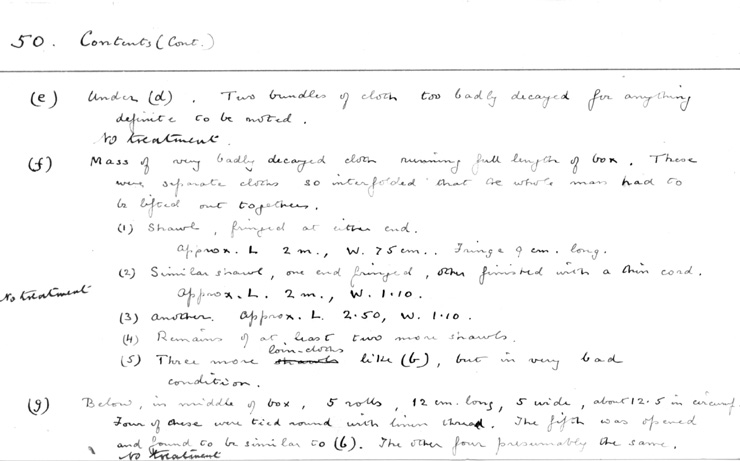 50. Contents (Cont.)
(e) Under (d). Two bundles of cloth too badly decayed for anything
definite to be noted.
No treatment.
(f) Mass of very badly decayed cloth running full length of box. These
were separate cloths so interfolded that the whole mass had to
be lifted out together.
(1) Shawl, fringed at either end.
Approx. L 2 m., W. 75 cm.. Fringe 9 cm. long.
(2) Similar shawl, one end fringed, other finished with a thin cord.
No treatment
Approx. L. 2 m., W. 1.10.
(3) Another. Approx. L. 2.50, W. 1.10.
(4) Remains of at least two more shawls.
(5) Three more shawls loin-cloths like (b), but in very bad
condition.
(g) Below, in middle of box, 5 rolls, 12 cm. long, 5 wide, about 12.5 in circumf.
Four of these were tied round with linen thread. The fifth was opened
and found to be similar to (b). The other four presumably the same.
No treatment